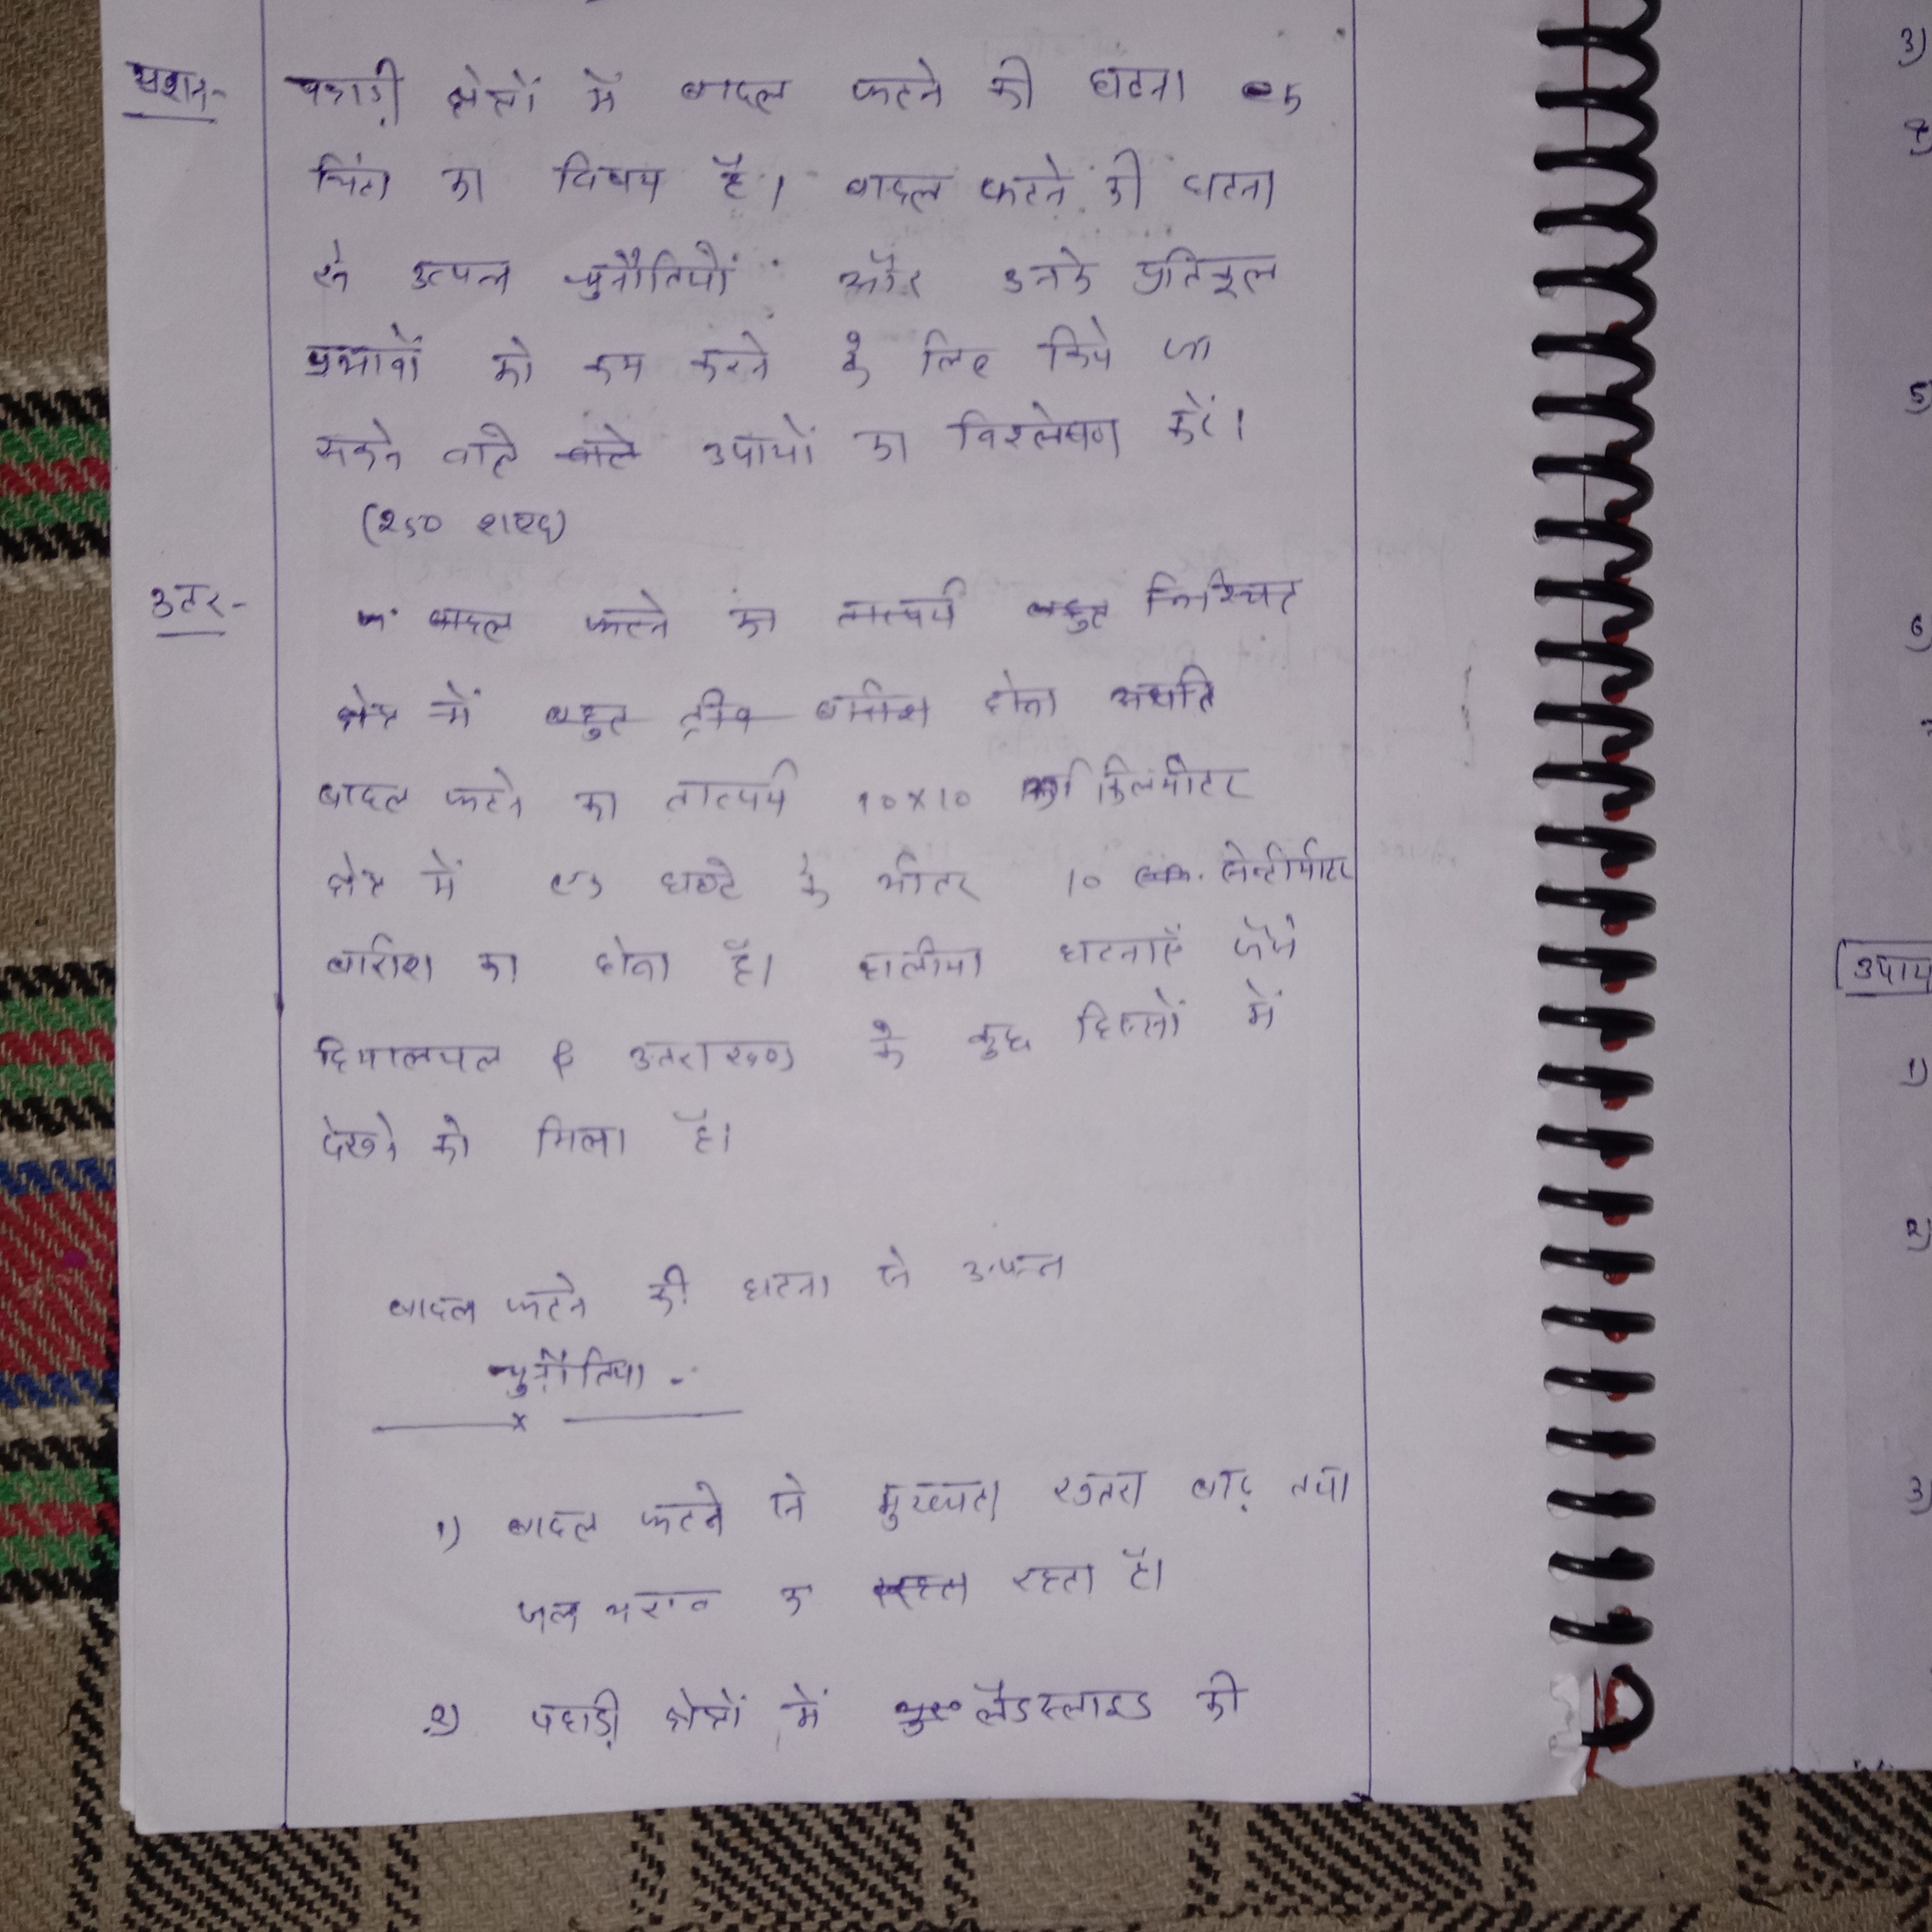 प्रश्न- पहाड़ी क्षेत्रों में बादल फटने की घटना एक
चिंता का विषय है। बादल फटने की घटना
से उत्पन्न चुनौतियों और उनके प्रतिकूल
प्रभावों को कम करने के लिए किये जा
सकने वाले वाले उपायों का विश्लेषण करें।
(250 शब्द)
उत्तर- बादल फटने का तात्पर्य बहुत निश्चित
क्षेत्र में बहुत तीव्र बारिश होना अर्थात
बादल फटने का तात्पर्य 10x10 किलोमीटर
क्षेत्र में एक घण्टे के भीतर 10 सेन्टीमीटर
बारिश का होना है। हालीया घटनाएँ जैसे
हिमालचल & उत्तराखण्ड के कुछ हिस्सों में
देखने को मिला है।
बादल फटने की घटना से उत्पन्न
चुनौतिया -
1) बादल फटने से मुख्यता खतरा बाढ़ तथा
जल भराव का रहता है।
2) पहाड़ी क्षेत्रों में लैंडस्लाइड की
3)
4)
5)
6)
उपाय
1)
2)
3)